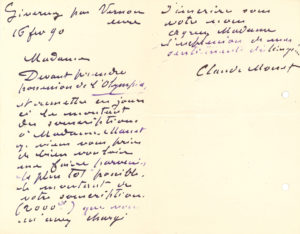 Giverny par Vernon
Eure
16 fev 90
Madame
Devant prendre
possession de l'Olympia,
et remettre ces jours
ci le montant
des souscriptions
à Madame Manet
je viens vous prier
de bien vouloir
me faire parvenir
le plus tôt possible
le montant de
votre souscription
(2000 fr) que vous
m'avez chargé
d'inscrire sous
votre nom
agréez Madame
l'expression de mes
sentiments
Claude Monet